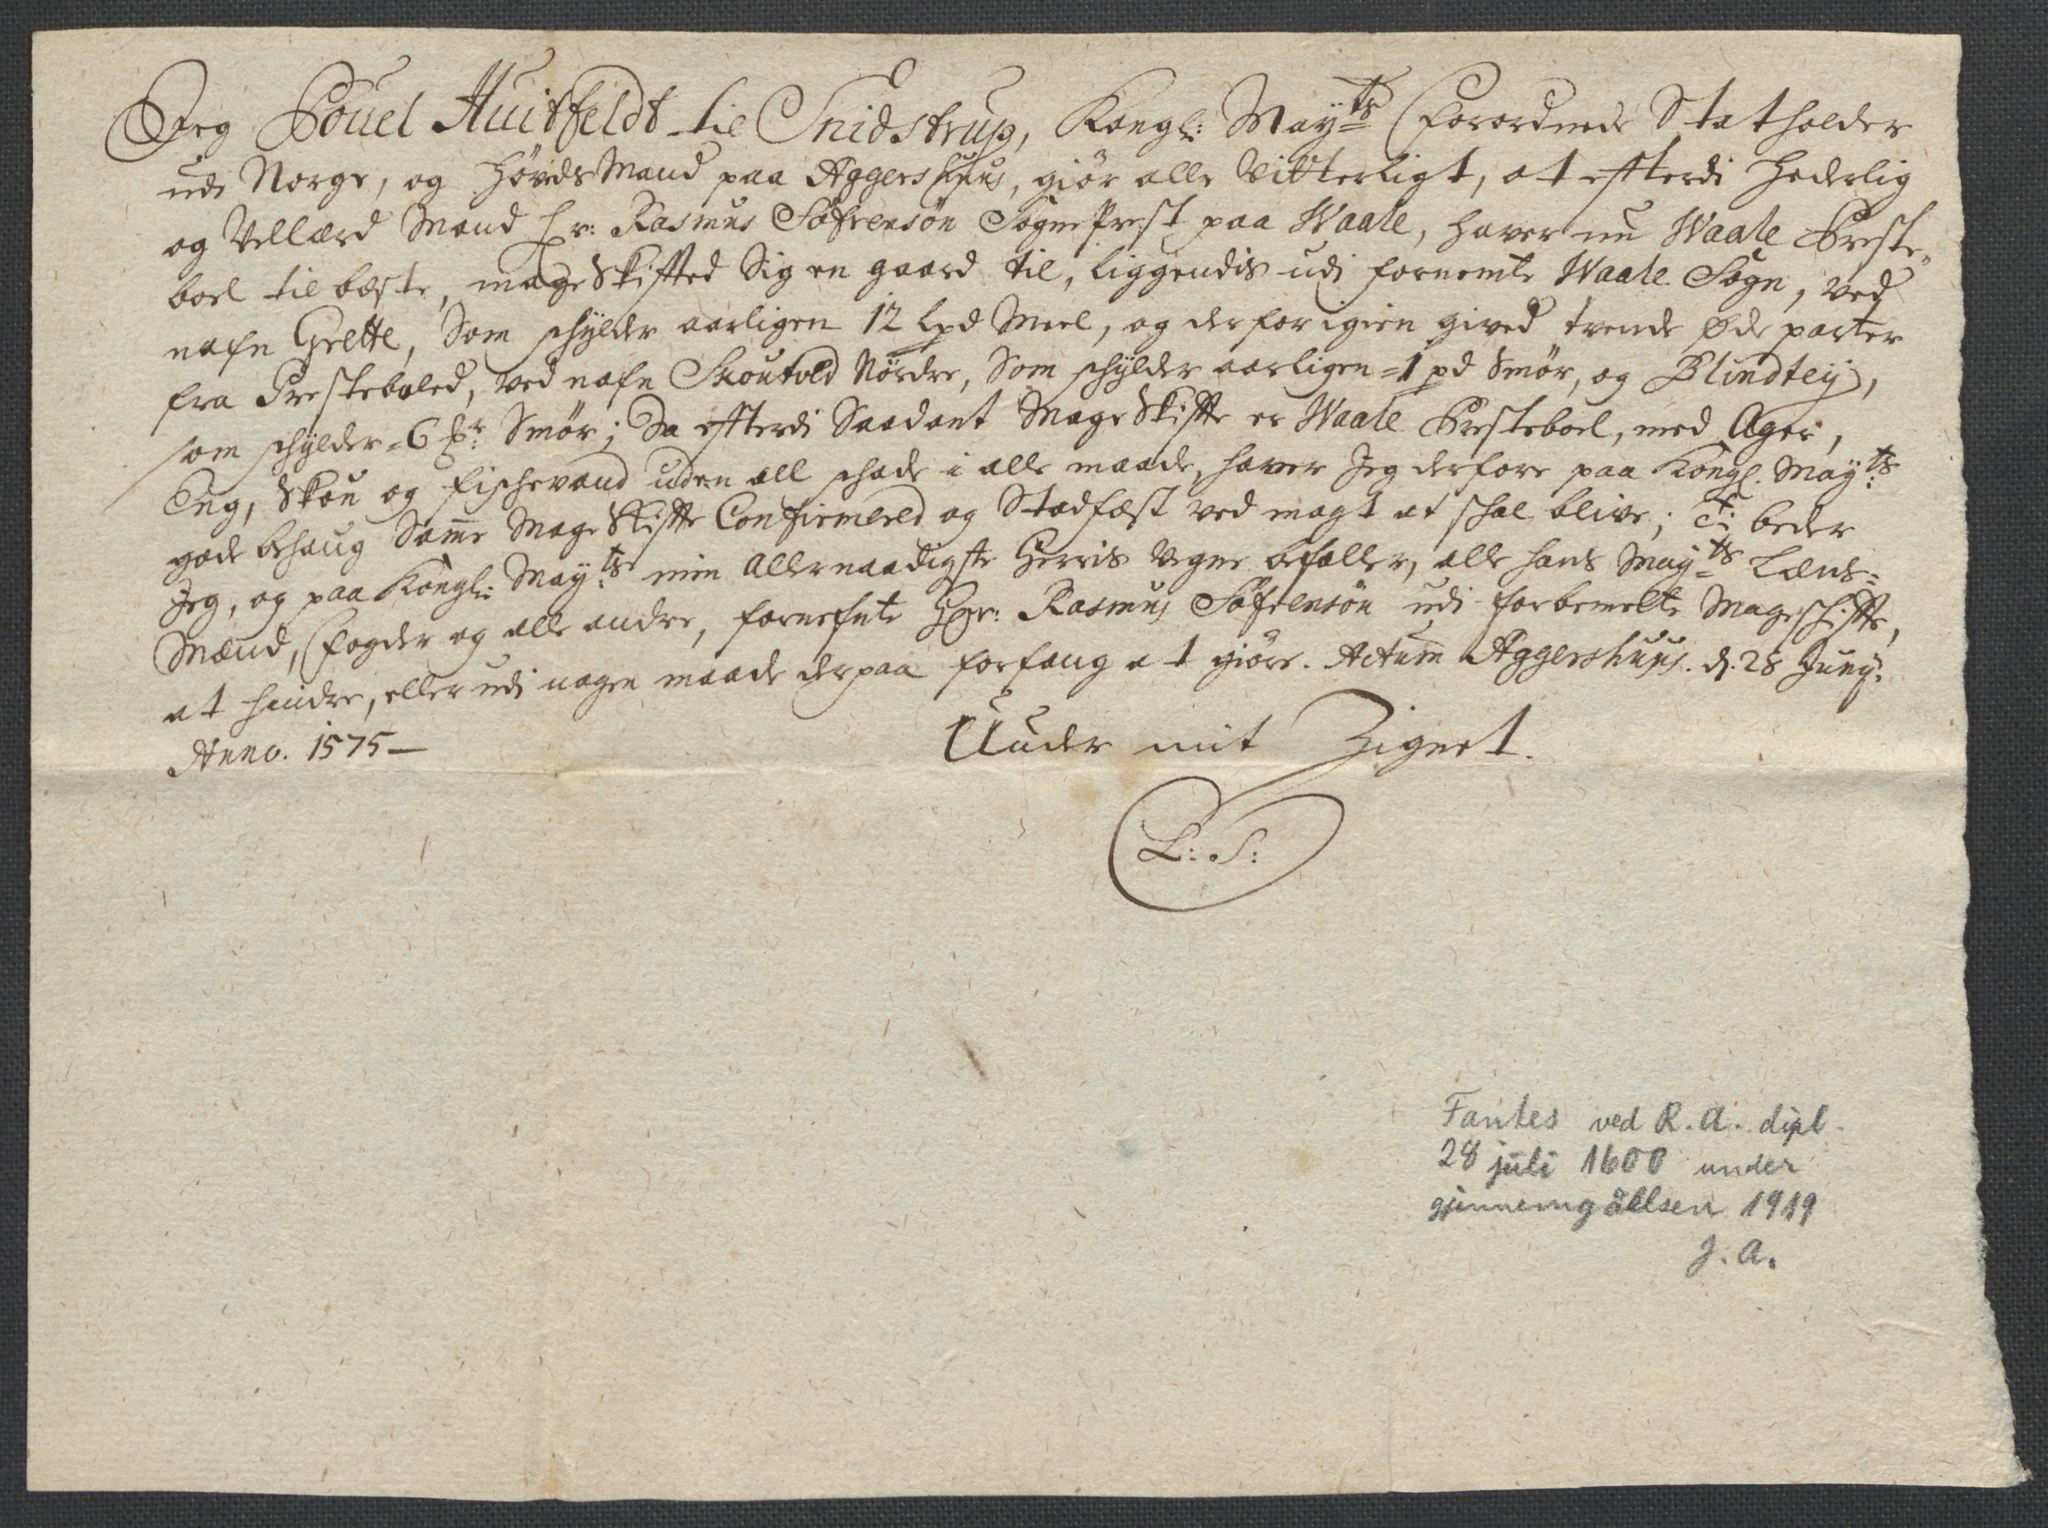 Jeg Pouel Huitfeldt til Snidstrup, Kongl: May:ts Forordnede Statholder
udi Norge, og HøvedsMand paa Aggershuus, giör alle Vitterligt, at efterdi Hæderlig
og Vellærd Mand Hr: Rasmus Söfrensön SognePrest paa Waale, haver nu Waale Preste-
boel til bæste, mageSkifted Sig en gaard til, liggendis udi fornemte Waale Sogn, ved
nafn Grette, Som schylder aarligen 12 Lpd Meel, og derfor igien gived trende Øde parter
fra Presteboled, ved nafn Skoutvld Nördre, Som schylder aarligen =1 pd Smör, og Blindtey,
som schylder =6 Hr: Smör; Da efterdi Saadant MageSkifte er Waale Presteboel, med Ager,
Eng, Skou og fischevand uden all schade i alle maade, haver Jeg derfore paa Kongl. May:ts
gode behaug Samme MageSkifte Confirmered og Stadfæst ved magt at schal blive; Ti beder
Jeg, og paa Kongl: May:ts min Allernaadigste Herris Vegne befaller, alle hans May:ts Læns=
Mænd, Fogder og alle andre, fornefnte Hr: Rasmus Söfrensön udi forbemelte Mageschifte,
at hindre, eller udi nogen maade derpaa forfang at giöre. Actum Aggershuus. d. 28 Junij.
Anno. 1575—
Under mit Zignet.
L: S:
Fantes ved R.A. dipl.
28 juli 1600 under
gjennemgåelsen 1919
J. A.